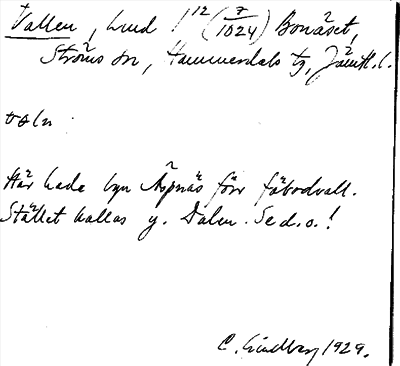 Vallen, lund 1/12 (7/1024) Bonäset,
Ströms sn, Hammerdals tg, Jämtl. l.
Här hade byn Äspnäs förr fäbodvall.
Stället kallas y. Dalen. Se d.o.!
C. Lindberg 1929.